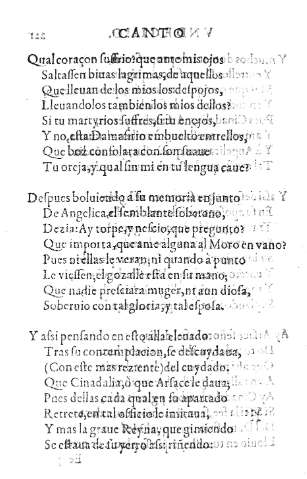 122
CANTO
Qual coraçon suffrio? que ante mis ojos
Saltassen biuas lagrimas, de aquellos
Que lleuan de los mios los despojos,
Lleuandolos tambien los mios dellos?
Si tu martyrios suffres, si tu enojos,
Y no, esta Damasirio embuelto entrellos,
Que boz consolara con son suaue
Tu oreja, y qual sin mi en tu lengua caue?
Despues boluiendo a su memoria en junto
De Angelica, el semblante soberano,
Dezia: Ay torpe, y nescio, que pregunto?
Que importa, que ame alguna al Moro en vano?
Pues ni ellas le veran, ni quando a punto
Le viessen, el gozalle está en su mano,
Que nadie presciara muger, ni aun diosa,
Soberuio con tal gloria, y tal esposa.
Y assi pensando en esto alla eleuado
Tras su contemplacion, se descuydaua,
(Con este mas reziente) del cuydado,
Que Cinadalia, ò que Arsace le daua,
Pues dellas cada qual en su apartado
Retrete, en tal officio le imitaua,
Y mas la graue Reyna, que gimiendo
Se estaua de su yerro assi riñendo: